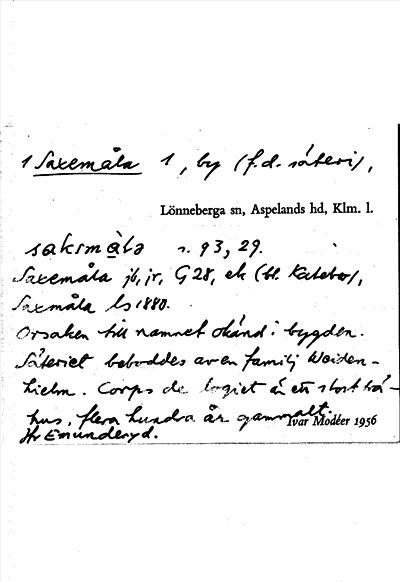 1 Saxemåla 1, by (f.d. säteri),
Lönneberga sn, Aspelands hd, Klm. l.
saksmå̀lə s. 93, 29.
Saxemåla jb, jr, G 28, ek (bl. Kateber),
Saxmåla ls 1880.
Orsaken till namnet okänd i bygden.
Säteriet beboddes av en familj Weiden-
hielm. Corps de logiet är ett stort trä-
hus, flera hundra år gammalt.
Ivar Modéer 1956
Jfr Emunderyd.